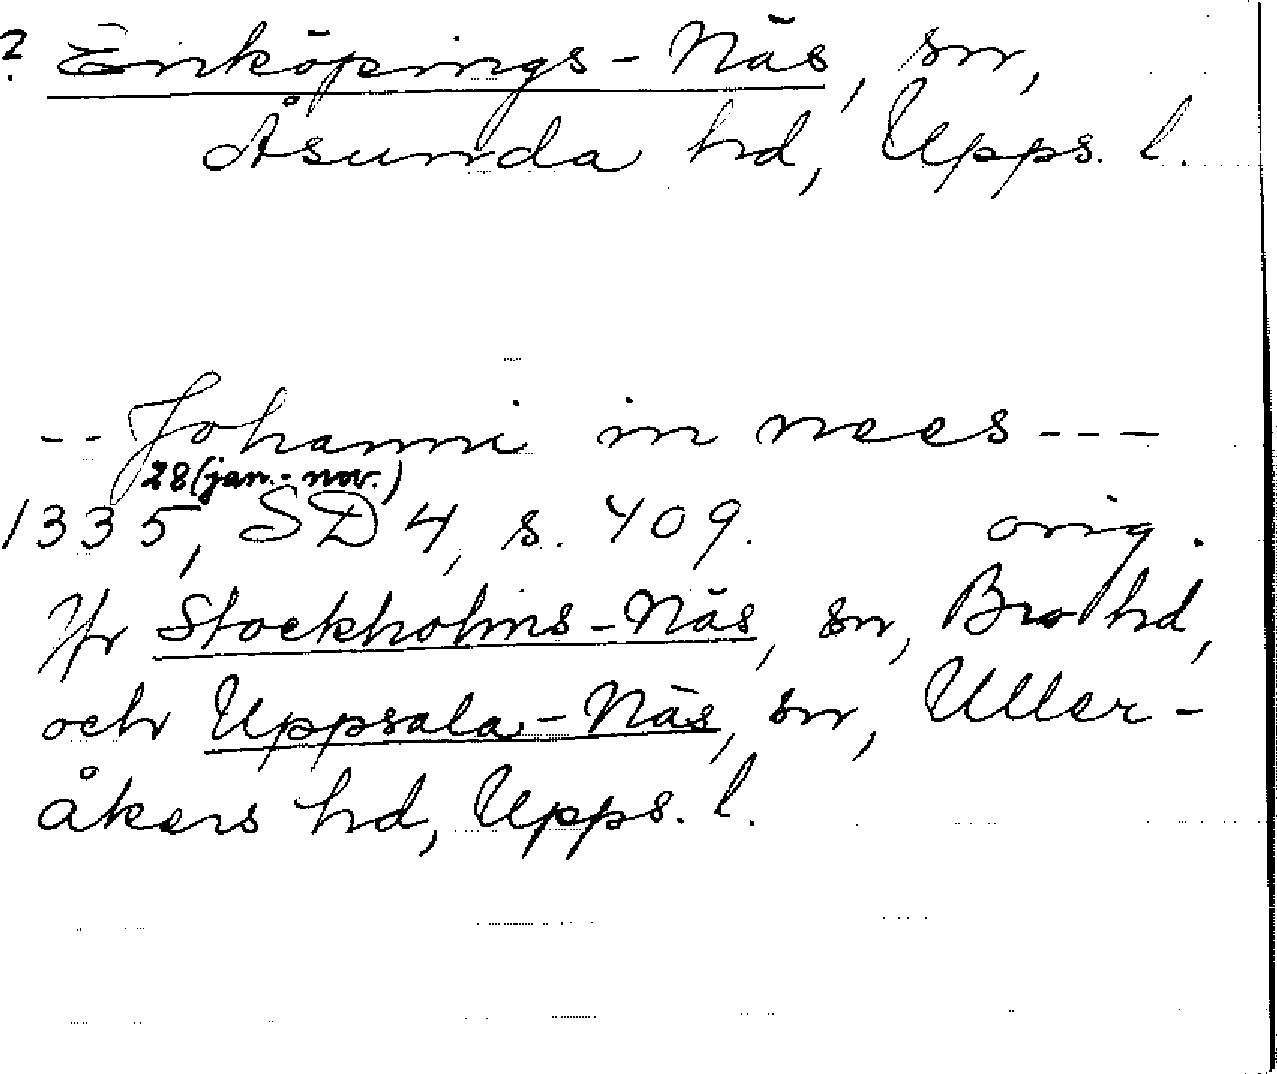 ? Enköpings-Näs, sn,
Åsunda hd, Upps. l.
-- Johanni in nees ---
28 (jan.-nov.)
1335, SD 4, s. 409. orig.
Jfr Stockholms-Näs, sn, Bro hd,
och Uppsala-Näs, sn, Uller-
åkers hd, Upps. l.